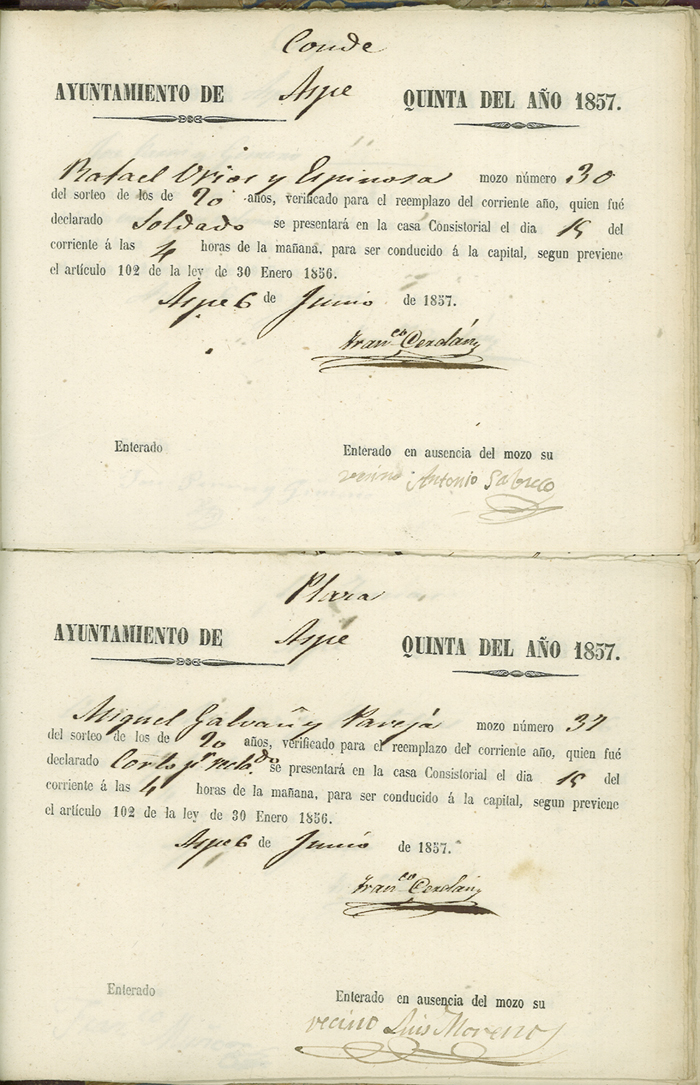 Conde
AYUNTAMIENTO DE Aspe QUINTA DEL AÑO 1857.
Rafael y Espinosa mozo número 30
del sorteo de los de 20 años, verificado para el reemplazo del corriente año, quien fué
declarado Soldado se presentará en la casa Consistorial el dia 15 del
corriente á las 4 horas de la mañana, para ser conducido á la capital, segun previene
el artículo 102 de la ley de 30 Enero 1856.
Aspe 6 de Junio de 1857.
Fran.co Cerdán
Enterado Enterado en ausencia del mozo su
vecino Antonio
Plaza
AYUNTAMIENTO DE Aspe QUINTA DEL AÑO 1857.
Miguel Galvañ y Pareja mozo número
del sorteo de los de 20 años, verificado para el reemplazo del corriente año, quien fué
declarado Corto se presentará en la casa Consistorial el dia 15 del
corriente á las 4 horas de la mañana, para ser conducido á la capital, segun previene
el artículo 102 de la ley de 30 Enero 1856.
Aspe 6 de Junio de 1857.
Fran.co Cerdán
Enterado Enterado en ausencia del mozo su
vecino Luis Moreno